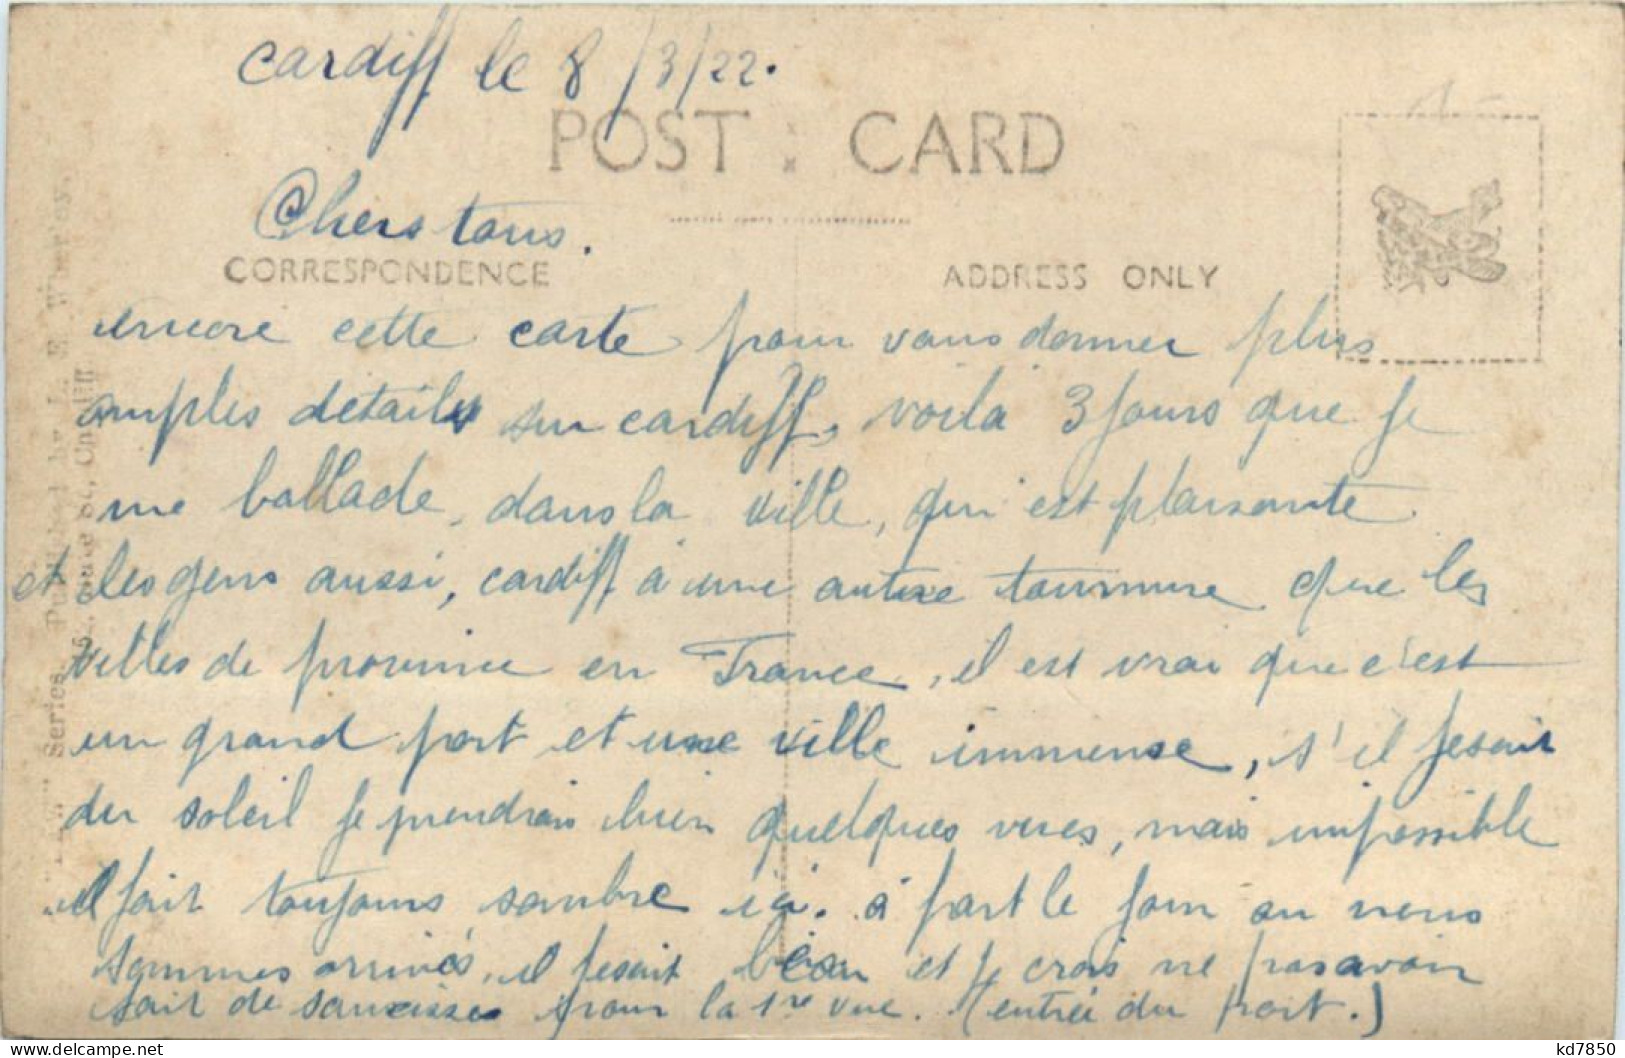 cardiff le 8/3/22.
POST CARD
Chers tous.
CORRESPONDENCE
ADDRESS ONLY
encore cette carte pour vous donner plus
amples details sur cardiff, voila 3 jours que je
me ballade, dans la ville, qui est plaisante
et les gens aussi, cardiff à une autre tournure que les
villes de province en France, il est vrai que c'est
un grand port et une ville immense, s'il fesait
du soleil je prendrais bien quelques vues, mais impossible
il fait toujours sombre ici. à part le jour ou nous
sommes arrivés, il fesait beau et je crois ne pas avoir
fait de saucisses pour la 1re vue. (entrée du port.)
Series. Published by
kd7850